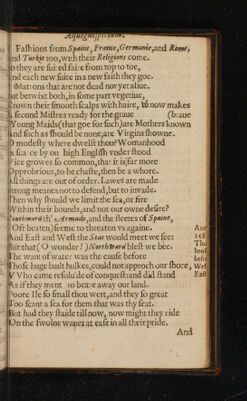 Aquignispicium.
Fashions from Spaine, France, Germanie, and Rome,
nd Turkie too, with their Religions come.
o they are sui ed sui e from top to toe,
nd each new suite in a new faith they goe.
Matrons that are not dead nor yet aliue,
ut betwixt both, in some part vegetiue,
Crown their smooth scalps with haire, now makes
second Mistres ready for the graue (braue
Young Maids (that goe for such) are Mothers known
nd such as should be none, are Virgins showne.
O modesty where dwelst thou? Womanhood
s sca ce by on high English vnder stood
ice growes so common, that it is far more
Opprobrious, to be chaste, then be a whore.
All things are out of order. Lawes are made
strong meanes not to defend, but to inuade.
Then why should we limit the sea, or fire
Within their bounds, and not our owne desire?
th' Armado, and the fleetes of Spaine,
Oft beaten) seeme to threaten vs againe.
And East and West the Star would meet we see:
But that (O wonder!) Northward blest we bee.
The want of water was the cause before
Those huge bast hulkes, could not approch our shore,
VVho came resolu'de of conquest and did stand
As if they ment to beate away our land.
Poore Ile so small thou wert, and they so great
Too scant a sea for them that was thy seat.
But had they staide till now, now might they ride
On the swolne waues at ease in all their pride.
And